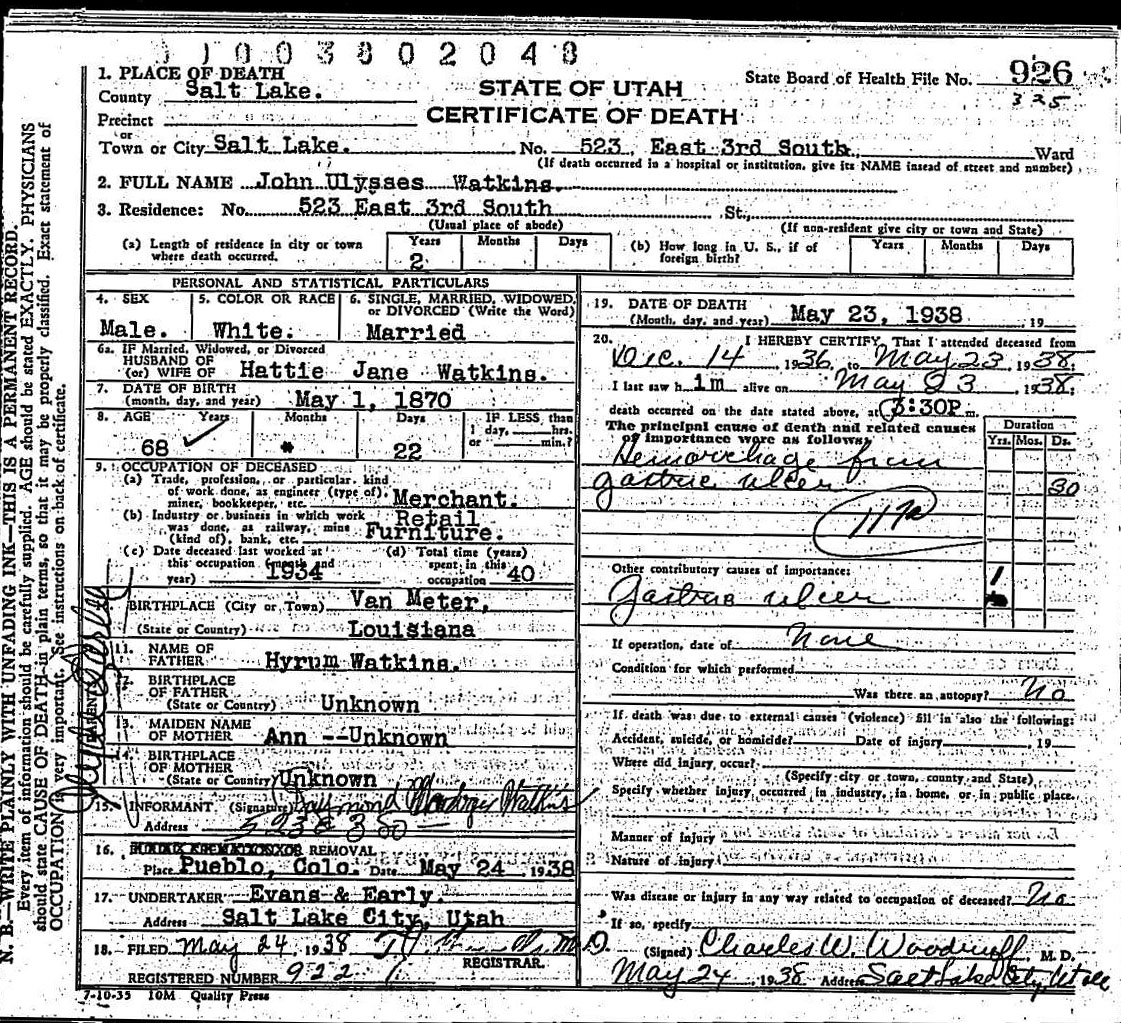 1003802048
1. PLACE OF DEATH
County Salt Lake.
STATE OF UTAH
State Board of Health File No. 926
325
Precinct
CERTIFICATE OF DEATH
or
Town or City Salt Lake. No. 523, East 3rd South. Ward
(If death occurred in a hospital or institution, give its NAME insead of street and number)
2. FULL NAME John Ulysses Watkins.
3. Residence: No. 523 East 3rd South St.,
(Usual place of abode) (If non-resident give city or town and State)
(a) Length of residence in city or town where death occurred. Years 2 Months Days
(b) How long in U. S., if of foreign birth? Years Months Days
PERSONAL AND STATISTICAL PARTICULARS
4. SEX Male.
5. COLOR OR RACE White.
6. SINGLE, MARRIED, WIDOWED, or DIVORCED (Write the Word) Married
6a. IF Married, Widowed, or Divorced
HUSBAND OF
(or) WIFE OF Hattie Jane Watkins.
7. DATE OF BIRTH
(month, day, and year) May 1, 1870
8. AGE Years 68 Months * Days 22 IF LESS than 1 day, hrs. or min.?
9. OCCUPATION OF DECEASED
(a) Trade, profession, or particular kind
of work done, as engineer (type of),
miner, bookkeeper, etc. Merchant.
(b) Industry or business in which work
was done, as railway, mine
(kind of), bank, etc. Retail Furniture.
(c) Date deceased last worked at
this occupation (month and
year) 1934
(d) Total time (years)
spent in this
occupation 40
BIRTHPLACE (City or Town) Van Meter,
(State or Country) Louisiana
11. NAME OF
FATHER Hyrum Watkins.
12. BIRTHPLACE
OF FATHER
(State or Country) Unknown
13. MAIDEN NAME
OF MOTHER Ann --Unknown
14. BIRTHPLACE
OF MOTHER
(State or Country) Unknown
PARENTS
15. INFORMANT (Signature) Raymond Watkins
Address 523 E 3 So
16. REMOVAL
Place Pueblo, Colo. Date May 24 1938
17. UNDERTAKER Evans & Early.
Address Salt Lake City, Utah
18. FILED May 24, 1938 M.D.
REGISTRAR.
REGISTERED NUMBER 922
7-10-35 10M Quality Press
19. DATE OF DEATH
(Month, day, and year) May 23, 1938, 19
20. I HEREBY CERTIFY, That I attended deceased from
Dec. 14 1936, to May 23, 1938.
I last saw him alive on May 23, 1938.
death occurred on the date stated above, at 3:30P m.
The principal cause of death and related causes
of importance were as follows:
Duration
Yrs. Mos. Ds.
Hemorrhage from
gastric ulcer 30
Other contributory causes of importance: 1
Gastric ulcer
If operation, date of None
Condition for which performed
Was there an autopsy? No
If death was due to external causes (violence) fill in also the following:
Accident, suicide, or homicide? Date of injury , 19
Where did injury occur?
(Specify city or town, county and State)
Specify whether injury occurred in industry, in home, or in public place.
Manner of injury
Nature of injury
Was disease or injury in any way related to occupation of deceased? No
If so, specify
(Signed) Charles W. Woodruff, M. D.
May 24 1938 Address Salt Lake City, Utah
N. B.—WRITE PLAINLY WITH UNFADING INK—THIS IS A PERMANENT RECORD.
Every item of information should be carefully supplied. AGE should be stated EXACTLY. PHYSICIANS
should state CAUSE OF DEATH in plain terms, so that it may be properly classified. Exact statement of
OCCUPATION is very important. See instructions on back of certificate.